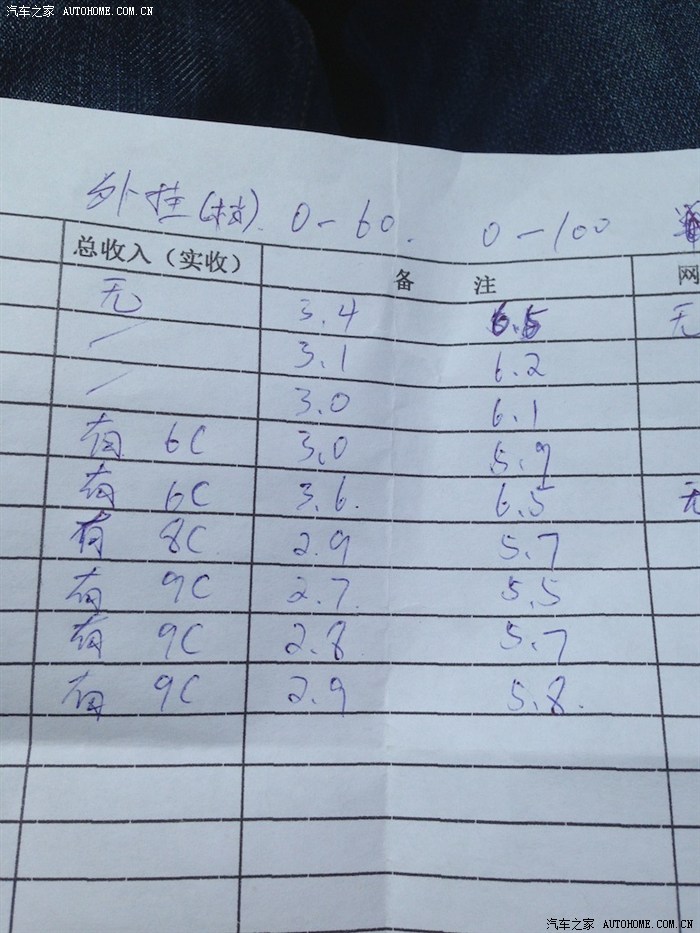 汽车之家 AUTOHOME.COM.CN
外挂(档). 0-60. 0-100
总收入（实收） 备 注 网
无 3.4 6.5 无
/ 3.1 6.2
/ 3.0 6.1
有 6C 3.0 5.9
有 6C 3.6. 6.5 无
有 8C 2.9 5.7
有 9C 2.7. 5.5
有 9C 2.8 5.7
有 9C 2.9 5.8.
汽车之家 AUTOHOME.COM.CN